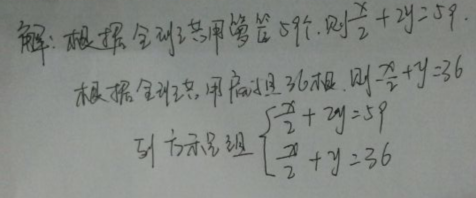 解:根据全班共用箩筐59个,则x/2+2y=59.
根据全班共用扁担36根.则x/2+y=36
列方程组 { x/2+2y=59
x/2+y=36